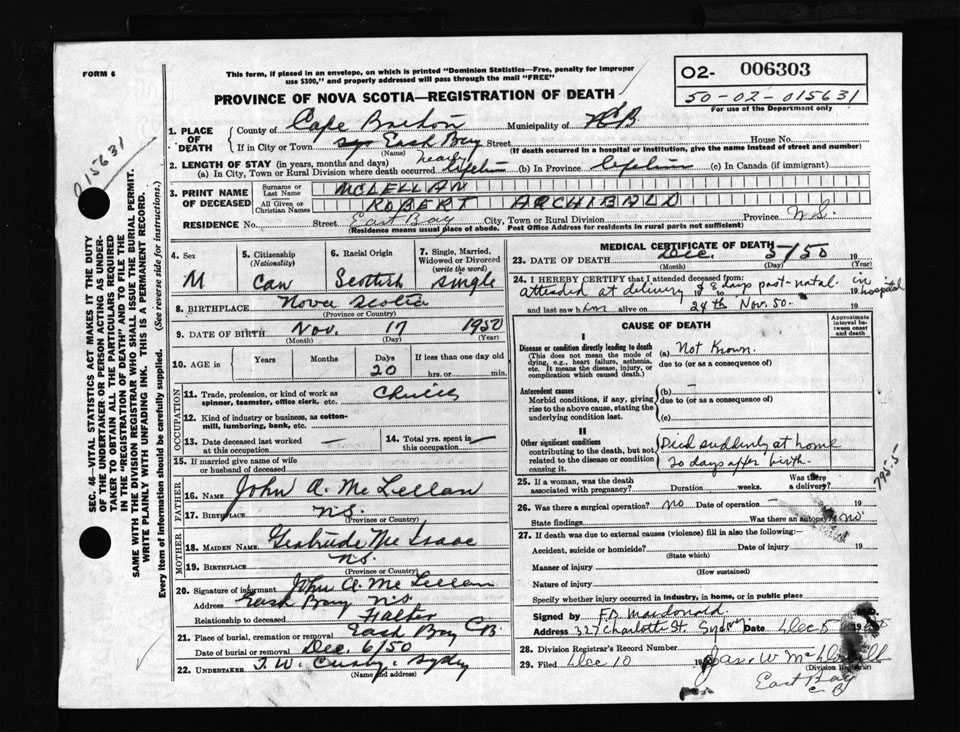 FORM 6
This form, if placed in an envelope, on which is printed "Dominion Statistics—Free, penalty for improper
use $300," and properly addressed will pass through the mail "FREE"
PROVINCE OF NOVA SCOTIA—REGISTRATION OF DEATH
O2- 006303
50-02-015631
For use of the Department only
15631
1. PLACE OF DEATH
County of Cape Breton Municipality of CB
If in City or Town East Bay Street House No.
(Name) (If death occurred in a hospital or institution, give the name instead of street and number)
2. LENGTH OF STAY (in years, months and days)
(a) In City, Town or Rural Division where death occurred nearly lifetime (b) In Province lifetime (c) In Canada (if immigrant)
3. PRINT NAME OF DECEASED
Surname or Last Name MCLELLAN
All Given or Christian Names ROBERT ARCHIBALD
RESIDENCE No. Street East Bay City, Town or Rural Division Province N.S.
(Residence means usual place of abode. Post Office Address for residents in rural parts not sufficient)
4. Sex M
5. Citizenship (Nationality) Can
6. Racial Origin Scottish
7. Single, Married, Widowed or Divorced (write the word) single
8. BIRTHPLACE Nova Scotia
(Province or Country)
9. DATE OF BIRTH Nov. 17 1950
(Month) (Day) (Year)
10. AGE in Years Months Days 20 If less than one day old hrs. or min.
OCCUPATION
11. Trade, profession, or kind of work as spinner, teamster, office clerk, etc. Child
12. Kind of industry or business, as cotton-mill, lumbering, bank, etc.
13. Date deceased last worked at this occupation —
14. Total yrs. spent in this occupation —
15. If married give name of wife or husband of deceased
FATHER
16. Name John A. McLellan
17. Birthplace N.S.
(Province or Country)
MOTHER
18. Maiden Name Gertrude Mc Isaac
19. Birthplace N.S.
(Province or Country)
20. Signature of informant John A. McLellan
Address East Bay N.S.
Relationship to deceased Father
21. Place of burial, cremation or removal East Bay CB
Date of burial or removal Dec. 6/50
22. UNDERTAKER T. W. Sydney
(Name and address)
MEDICAL CERTIFICATE OF DEATH
23. DATE OF DEATH Dec. 5/50 19
(Month) (Day) (Year)
24. I HEREBY CERTIFY that I attended deceased from:
attended at delivery & 8 days post-natal in hospital
and last saw him alive on 24th Nov. 50. 19
CAUSE OF DEATH
Approximate interval between onset and death
I
Disease or condition directly leading to death (a) Not Known.
(This does not mean the mode of dying, e.g., heart failure, asthenia, etc. It means the disease, injury, or complication which caused death.)
due to (or as a consequence of)
Antecedent causes (b) —
Morbid conditions, if any, giving rise to the above cause, stating the underlying condition last.
due to (or as a consequence of)
(c)
II
Other significant conditions contributing to the death, but not related to the disease or condition causing it.
Died suddenly at home
20 days after birth.
795.5
25. If a woman, was the death associated with pregnancy? Duration weeks. Was there a delivery?
26. Was there a surgical operation? no Date of operation — 19
State findings Was there an autopsy? no
27. If death was due to external causes (violence) fill in also the following:—
Accident, suicide or homicide? Date of injury 19
(State which)
Manner of injury
(How sustained)
Nature of injury
Specify whether injury occurred in industry, in home, or in public place
Signed by F.D. Macdonald.
Address 327 Charlotte St. Sydney Date Dec 5 19
28. Division Registrar's Record Number
29. Filed Dec 10 19 Jas. W
(Division Registrar)
East Bay
C B
SEC. 46—VITAL STATISTICS ACT MAKES IT THE DUTY
OF THE UNDERTAKER OR PERSON ACTING AS UNDER-
TAKER TO OBTAIN ALL THE PARTICULARS REQUIRED
IN THE "REGISTRATION OF DEATH" AND TO FILE THE
SAME WITH THE DIVISION REGISTRAR WHO SHALL ISSUE THE BURIAL PERMIT.
WRITE PLAINLY WITH UNFADING INK. THIS IS A PERMANENT RECORD.
Every item of information should be carefully supplied. (See reverse side for instructions.)